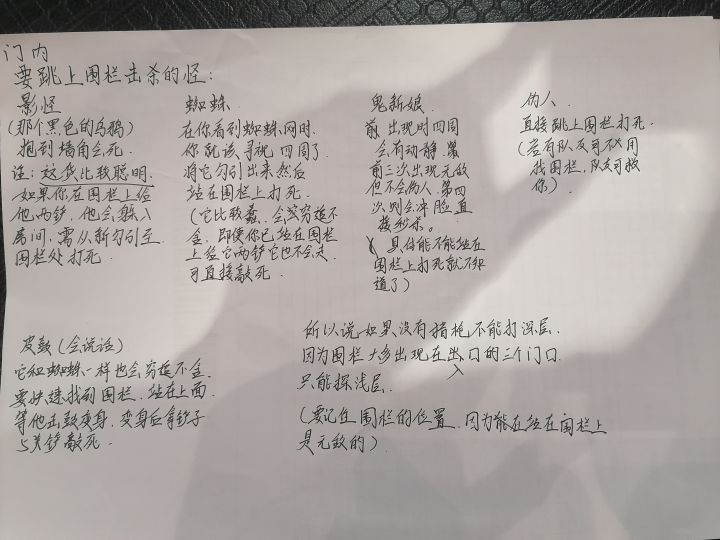 门内
要跳上围栏击杀的怪：
影怪
（那个黑色的乌鸦）
抱到墙角会死
注：这货比较聪明
如果你在围栏上给
他两铲，他会躲入
房间，需从新勾引至
围栏处打死
蜘蛛
在你看到蜘蛛网时
你就该寻视四周了
将它勾引出来然后
站在围栏上打死
（它比较蠢，会穷追不
舍，即使你已站在围栏
上给它两铲它也不会走
可直接敲死
鬼新娘
前出现时四周
会有动静
前三次出现无敌
但不会伤人，第四
次则会冲脸直
接秒杀。
（具体能不能站在
围栏上打死就不知
道了）
伪人
直接跳上围栏打死
（若有队友可不用
找围栏，队友可救
你）
皮鼓（会说话）
它和蜘蛛一样也会穷追不舍
要快速找到围栏，站在上面
等他击鼓变身，变身后拿铲子
5关铲敲死
所以说如果没有指枪不能打深层
因为围栏大多出现在出口的三个门口
入
只能探浅层
（要记住围栏的位置，因为能在站在围栏上
是无敌的）